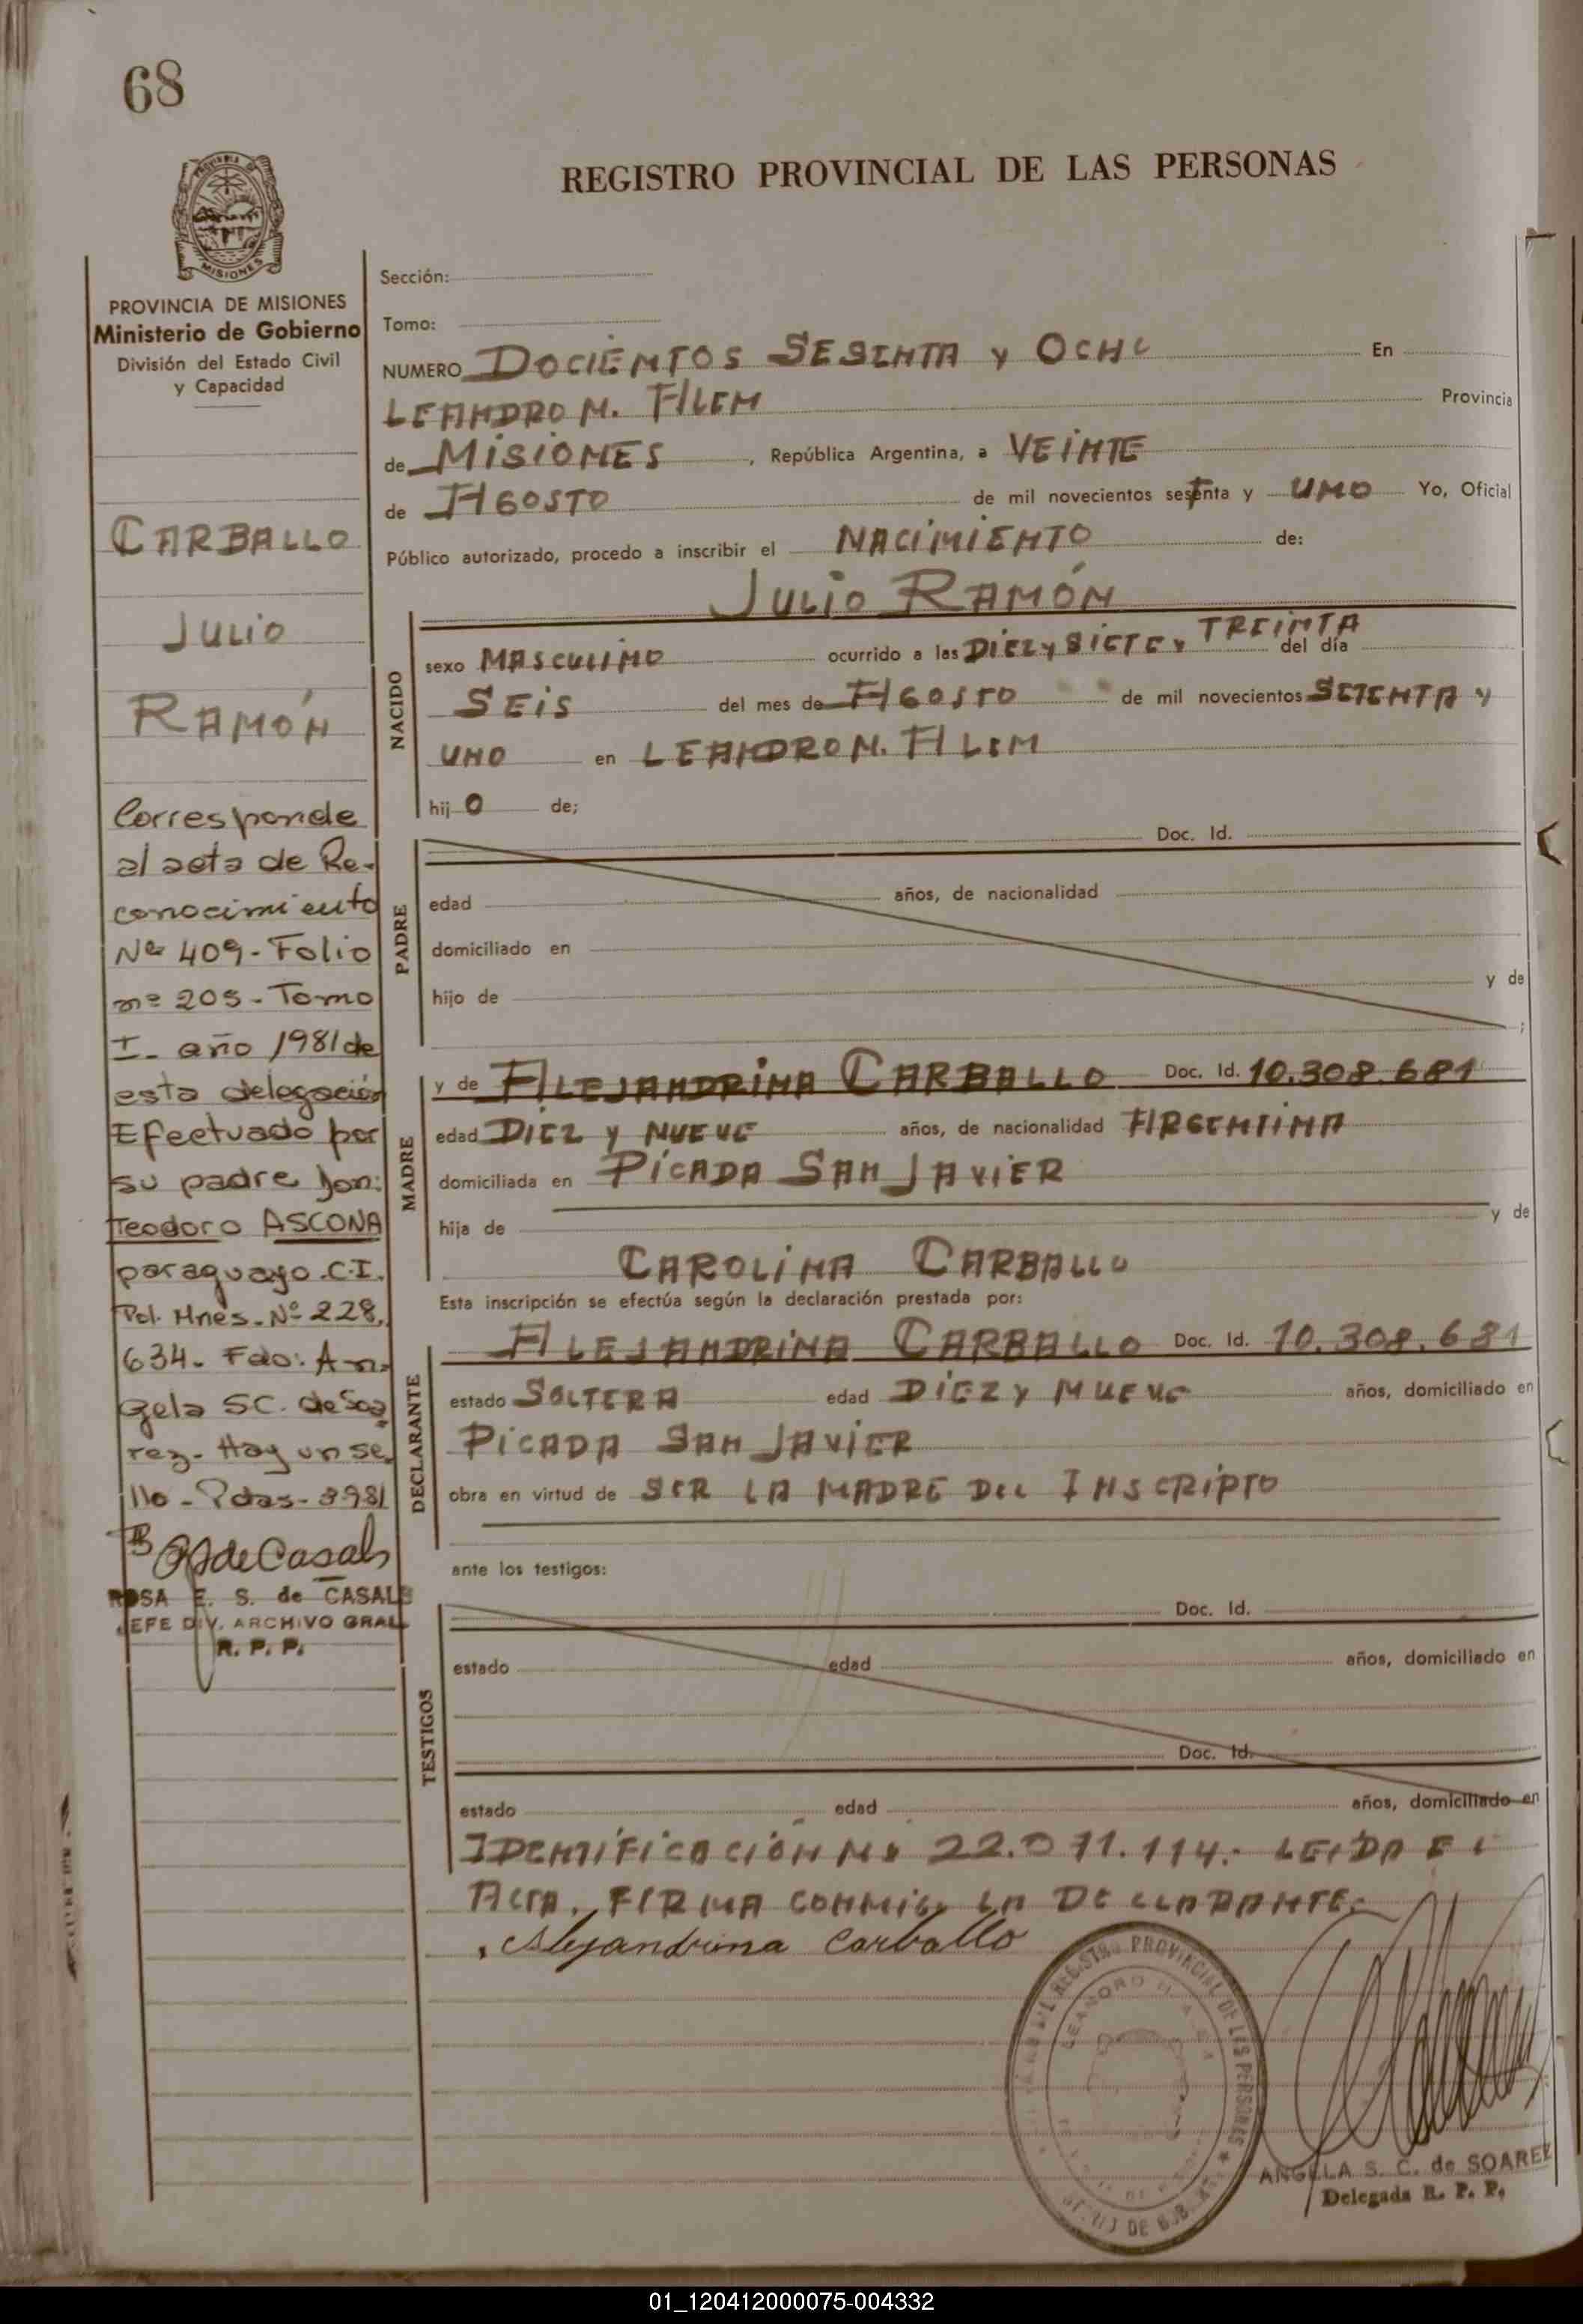 68
REGISTRO PROVINCIAL DE LAS PERSONAS
PROVINCIA DE MISIONES
MISIONES
PROVINCIA DE MISIONES
Ministerio de Gobierno
División del Estado Civil
y Capacidad
CARBALLO
JULIO
RAMÓN
Corresponde
al acta de Re-
conocimiento
Nº 409 - Folio
nº 205 - Tomo
I - año 1981 de
esta delegación
Efectuado por
su padre Don:
Teodoro ASCONA
paraguayo. C.I.
Pol. Mnes. Nº 228.
634 - Fdo: An-
gela S.C. de Soa
rez - Hay un se
llo - Pdas -
ROSA E. S. de CASALS
JEFE DIV. ARCHIVO GRAL.
R. P. P.
Sección:
Tomo:
NUMERO DOCIENTOS SESENTA y OCHO En
LEANDRO N. ALEM Provincia
de MISIONES, República Argentina, a VEINTE
de AGOSTO de mil novecientos setenta y UNO Yo, Oficial
Público autorizado, procedo a inscribir el NACIMIENTO de:
JULIO RAMÓN
NACIDO
sexo MASCULINO ocurrido a las DIEZ y SIETE y TREINTA del día
SEIS del mes de AGOSTO de mil novecientos SETENTA y
UNO en LEANDRO N. ALEM
hij O de;
PADRE
Doc. Id.
edad años, de nacionalidad
domiciliado en
hijo de y de
;
MADRE
y de ALEJANDRINA CARBALLO Doc. Id. 10.308.681
edad DIEZ y NUEVE años, de nacionalidad ARGENTINA
domiciliada en PICADA SAN JAVIER
hija de y de
CAROLINA CARBALLO
Esta inscripción se efectúa según la declaración prestada por:
DECLARANTE
ALEJANDRINA CARBALLO Doc. Id. 10.308.681
estado SOLTERA edad DIEZ y NUEVE años, domiciliado en
PICADA SAN JAVIER
obra en virtud de SER LA MADRE DEL INSCRIPTO
ante los testigos:
TESTIGOS
Doc. Id.
estado edad años, domiciliado en
Doc. Id.
estado edad años, domiciliado en
IDENTIFICACIÓN Nº 22.071.114.- LEIDA EL
ACTA, FIRMA CONMIGO LA DECLARANTE.-
Alejandrina Carballo
REGISTRO PROVINCIAL DE LAS PERSONAS
LEANDRO N. ALEM
ANGELA S. C. de SOAREZ
Delegada R. P. P.
01_120412000075-004332